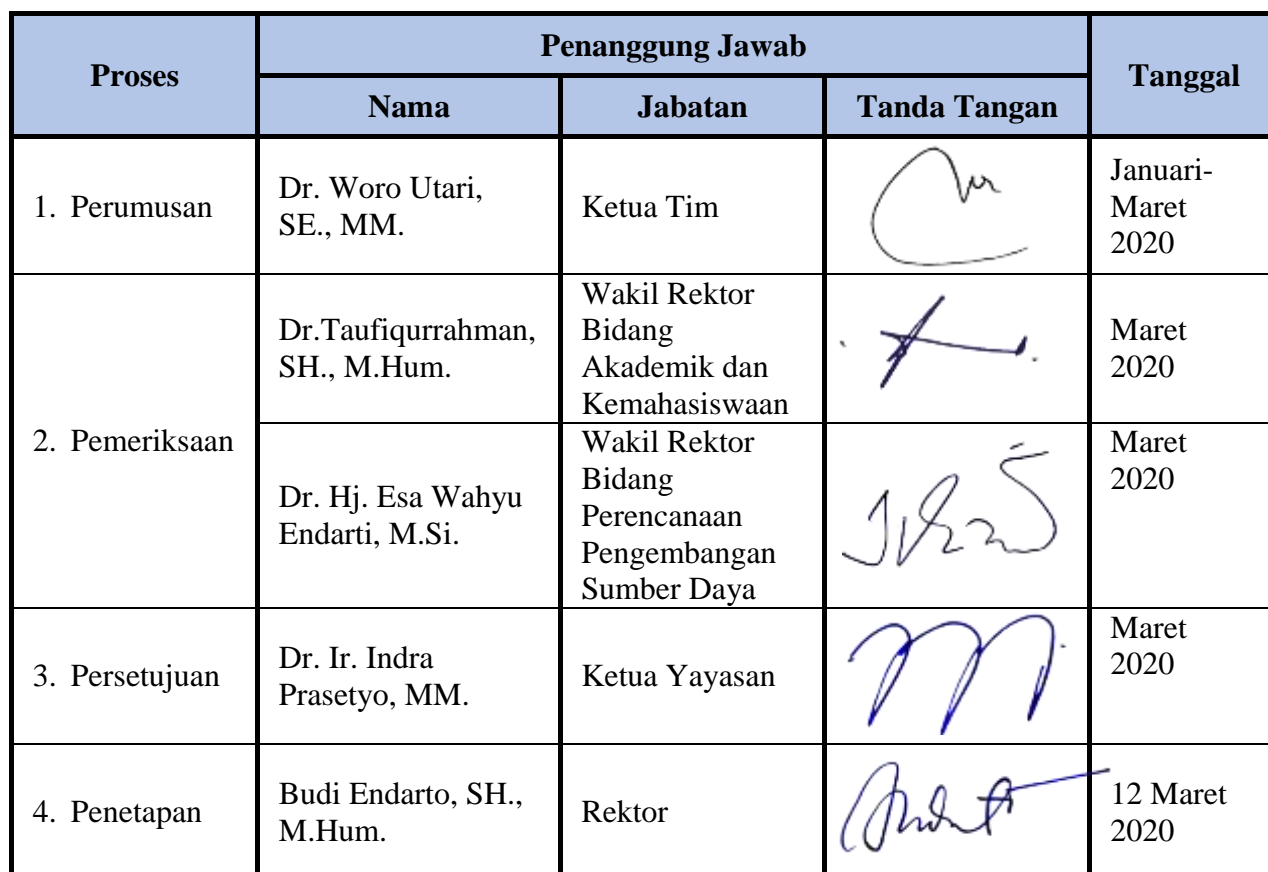 Proses
Penanggung Jawab
Tanggal
Nama
Jabatan
Tanda Tangan
1. Perumusan
Dr. Woro Utari,
SE., MM.
Ketua Tim
Januari-
Maret
2020
2. Pemeriksaan
Dr.Taufiqurrahman,
SH., M.Hum.
Wakil Rektor
Bidang
Akademik dan
Kemahasiswaan
Maret
2020
Dr. Hj. Esa Wahyu
Endarti, M.Si.
Wakil Rektor
Bidang
Perencanaan
Pengembangan
Sumber Daya
Maret
2020
3. Persetujuan
Dr. Ir. Indra
Prasetyo, MM.
Ketua Yayasan
Maret
2020
4. Penetapan
Budi Endarto, SH.,
M.Hum.
Rektor
12 Maret
2020